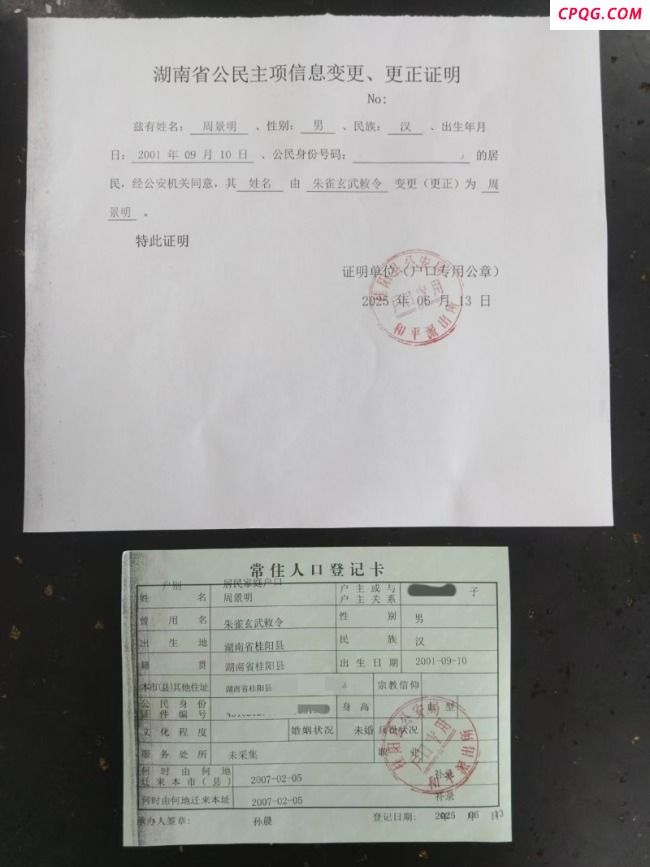 CPQG.COM
湖南省公民主项信息变更、更正证明
No:
兹有姓名: 周景明 、性别: 男 、民族: 汉 、出生年月
日: 2001 年 09 月 10 日 、公民身份号码: 的居
民，经公安机关同意，其 姓名 由 朱雀玄武敕令 变更（更正）为 周
景明 。
特此证明
证明单位（户口专用公章）
2025 年 06 月 13 日
桂阳县公安局
户口专用
和平派出所
常住人口登记卡
户别 居民家庭户口
姓名 周景明 户主或与户主关系 子
曾用名 朱雀玄武敕令 性别 男
出生地 湖南省桂阳县 民族 汉
籍贯 湖南省桂阳县 出生日期 2001-09-10
本市(县)其他住址 湖南省桂阳县 宗教信仰
公民身份证件编号 身高 血型
文化程度 婚姻状况 未婚 兵役状况
服务处所 未采集 职业
何时由何地迁来本市(县) 2007-02-05 补录
何时由何地迁来本址 2007-02-05 补录
承办人签章: 孙晨 登记日期: 2025 年 06 月 13 日
桂阳县公安局
户口专用
和平派出所